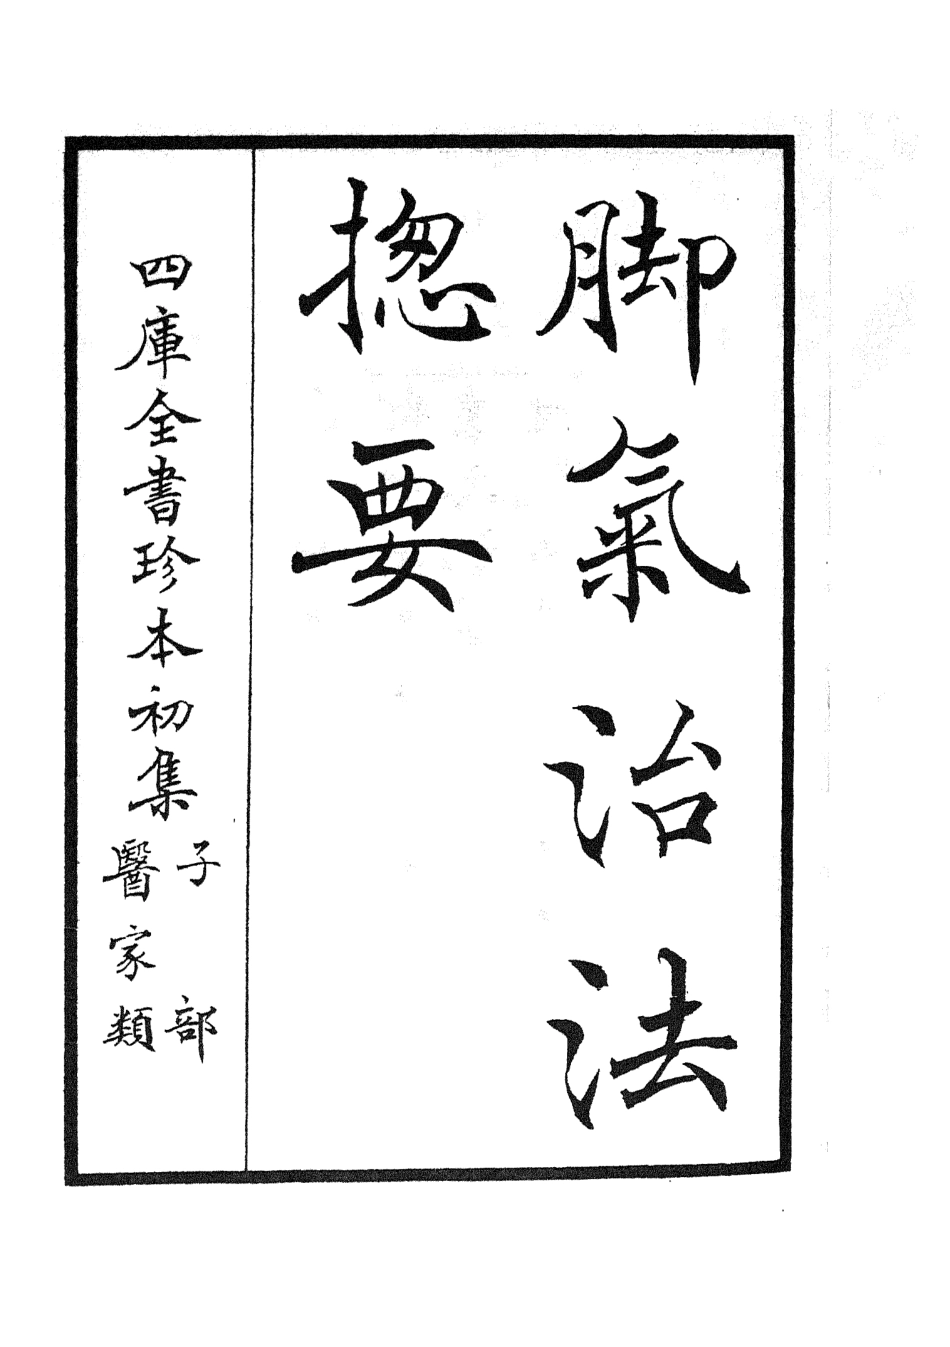 脚氣治法
揔要
四庫全書珍本初集
子部
醫家類